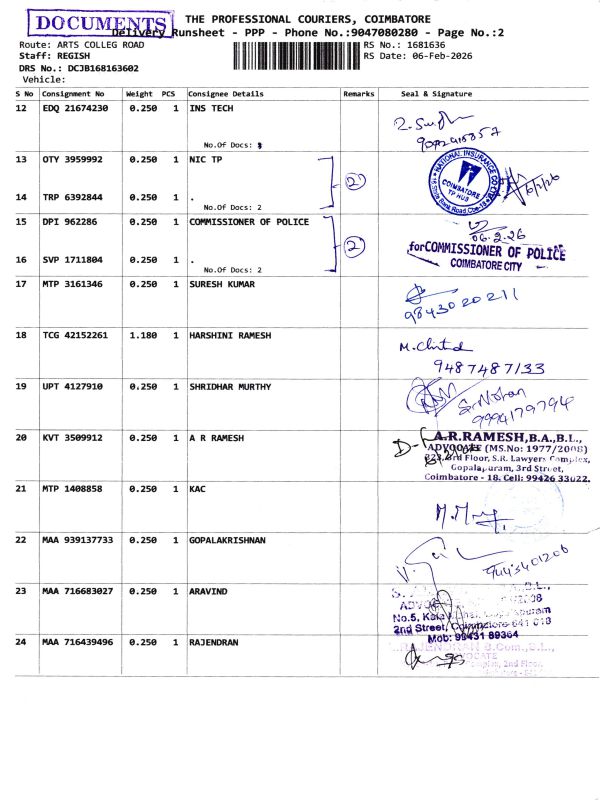 DOCUMENTS
THE PROFESSIONAL COURIERS, COIMBATORE
Delivery Runsheet - PPP - Phone No.:9047080280 - Page No.:2
Route: ARTS COLLEG ROAD
RS No.: 1681636
Staff: REGISH
RS Date: 06-Feb-2026
DRS No.: DCJB168163602
Vehicle:
S No Consignment No Weight PCS Consignee Details Remarks Seal & Signature
12 EDQ 21674230 0.250 1 INS TECH
No.Of Docs:
13 OTY 3959992 0.250 1 NIC TP
NATIONAL INSURANCE CO
COIMBATORE
TP HUB
2
14 TRP 6392844 0.250 1 .
No.Of Docs: 2
15 DPI 962286 0.250 1 COMMISSIONER OF POLICE
06.2.26
2
for COMMISSIONER OF POLICE
COIMBATORE CITY
16 SVP 1711804 0.250 1 .
No.Of Docs: 2
17 MTP 3161346 0.250 1 SURESH KUMAR
9843020211
18 TCG 42152261 1.180 1 HARSHINI RAMESH
9487487133
19 UPT 4127910 0.250 1 SHRIDHAR MURTHY
9994179794
20 KVT 3509912 0.250 1 A R RAMESH
A.R.RAMESH,B.A.,B.L.,
ADVOCATE (MS.No: 1977/2008)
323,3rd Floor, S.R. Lawyers Complex,
Gopalapuram, 3rd Street,
Coimbatore - 18. Cell: 99426 33022.
21 MTP 1408858 0.250 1 KAC
22 MAA 939137733 0.250 1 GOPALAKRISHNAN
9443401206
23 MAA 716683027 0.250 1 ARAVIND
No.5,
2nd Street, Coimbatore-641 018
Mob: 99431 89364
24 MAA 716439496 0.250 1 RAJENDRAN